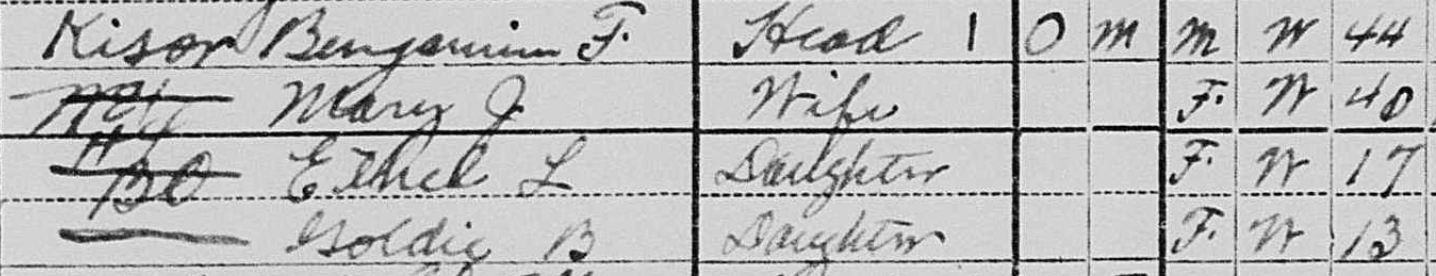 Kisor Benjamin F. Head 1 O M M W 44
Mary J Wife F. W 40
Ethel L Daughter F. W 17
Goldie B Daughter F. W 13